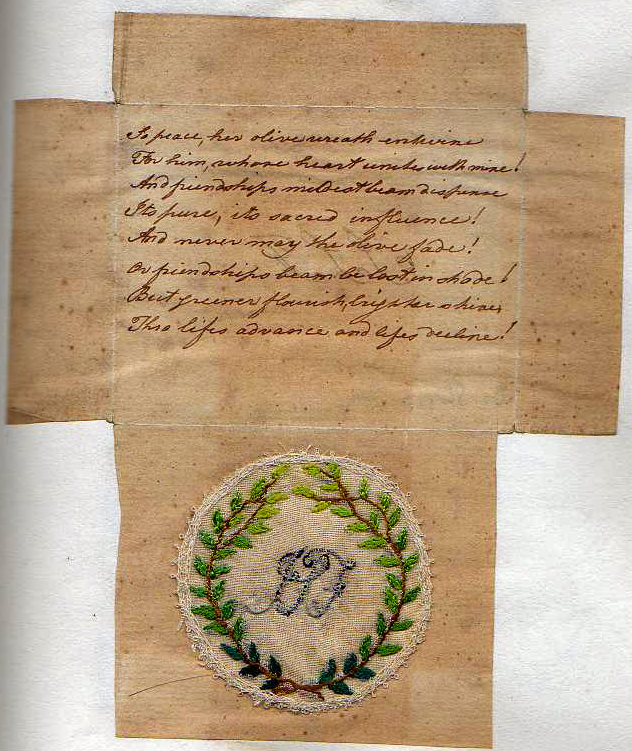 To peace, her olive wreath entwine
For him, whose heart unites with mine!
And friendships mildest beam dispense
Its pure, its sacred influence!
And never may the olive fade!
Or friendships beam be lost in shade!
But greener flourish, brighter shine,
Thro lifes advance and lifes decline!